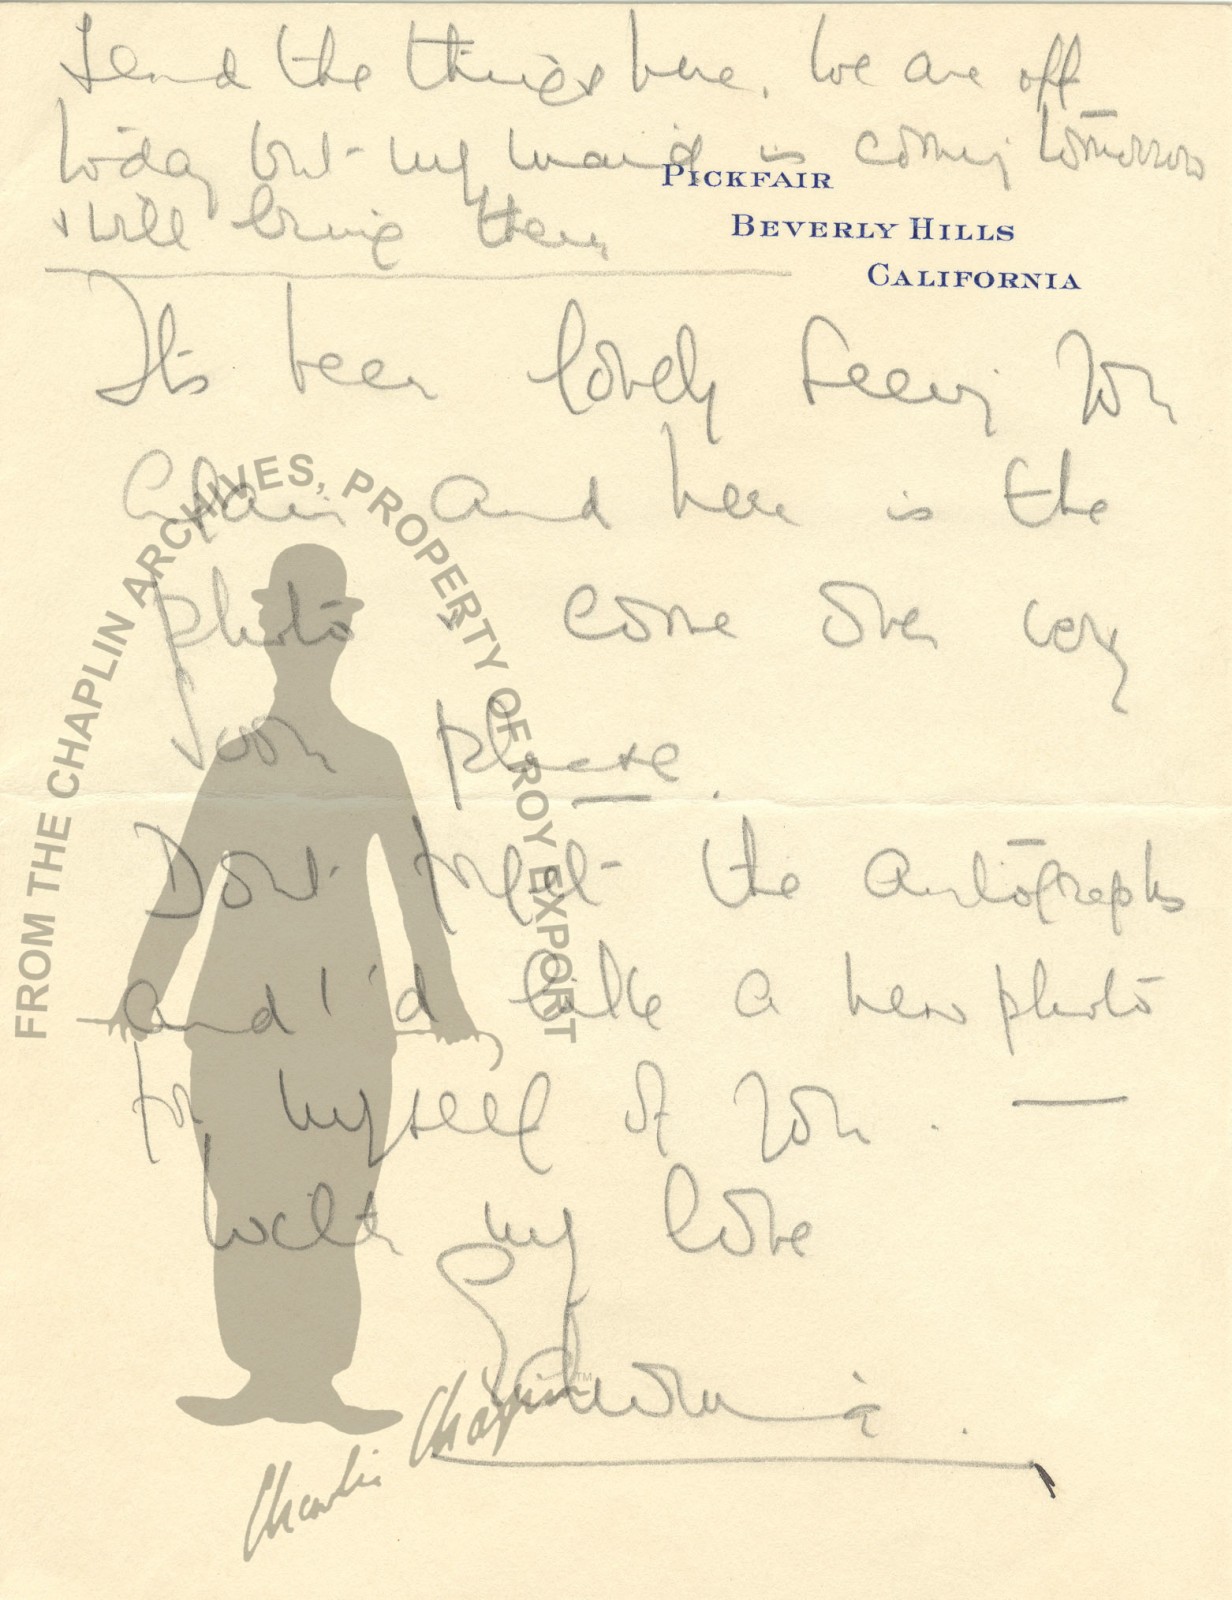 Send the things here. We are off
today but my maid is coming tomorrow
& will bring them
PICKFAIR
BEVERLY HILLS
CALIFORNIA
Its been lovely seeing you
again and here is the
photo & come over very
soon please.
Dont forget the autographs
and I'd like a new photo
for myself of you. —
With my love
Edwina.
FROM THE CHAPLIN ARCHIVES, PROPERTY OF ROY EXPORT
Charlie Chaplin™